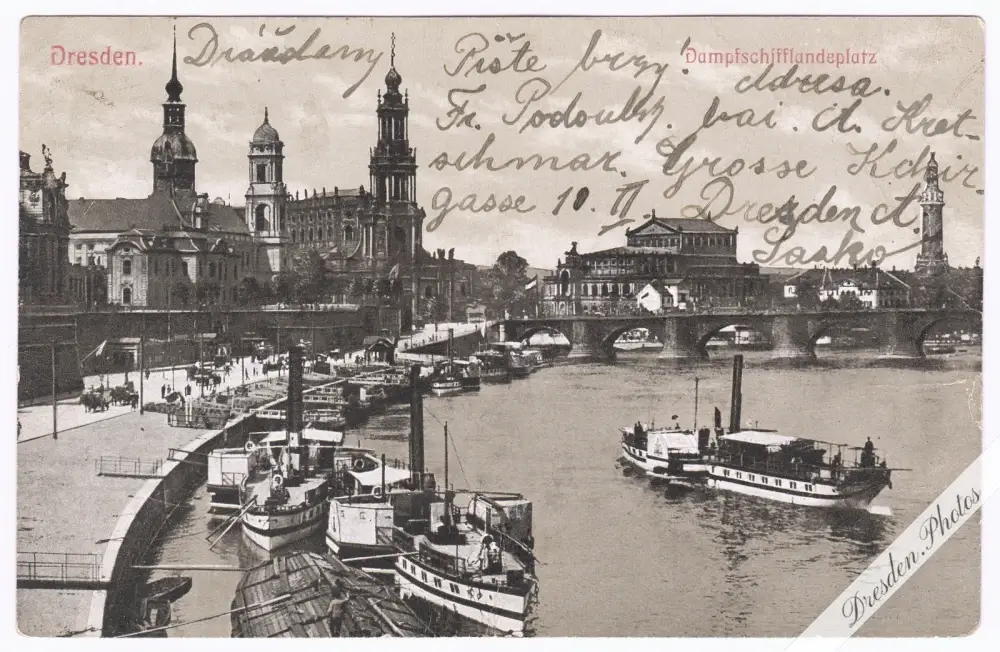 Dresden.
Dampfschifflandeplatz
Drážďany
Pište brzy!
Adresa.
Fr. Podoubský. bai. d. Kret-
schmar. Grosse Kchir-
gasse 10. II
Dresden A.
Sasko.
Dresden.Photos